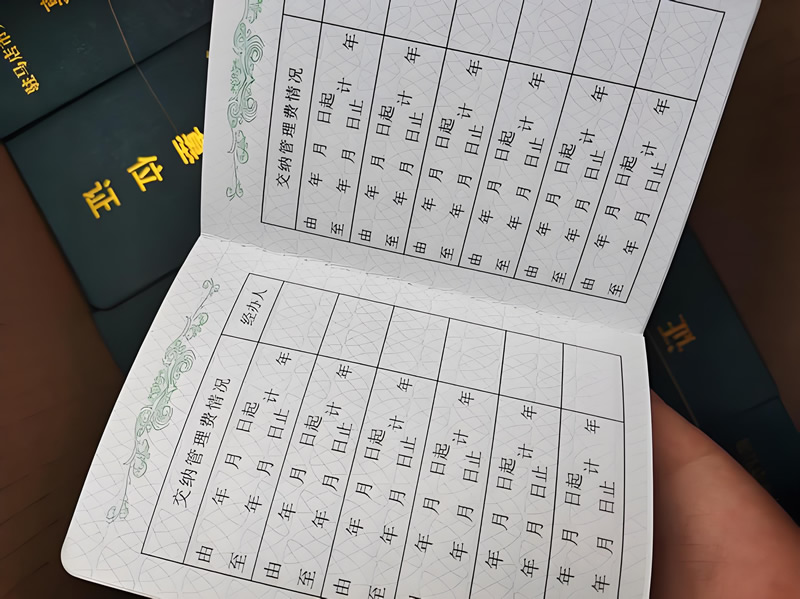 驻马店市
墓位证
交纳管理费情况
由 年 月 日起 计 年
至 年 月 日止
由 年 月 日起 计 年
至 年 月 日止
由 年 月 日起 计 年
至 年 月 日止
由 年 月 日起 计 年
至 年 月 日止
由 年 月 日起 计 年
至 年 月 日止
由 年 月 日起 计 年
至 年 月 日止
交纳管理费情况 经办人
由 年 月 日起 计 年
至 年 月 日止
由 年 月 日起 计 年
至 年 月 日止
由 年 月 日起 计 年
至 年 月 日止
年 月 日起 计 年
年 月 日止
年 月 日起 计 年
年 月 日止
年 月 日起 计 年
年 月 日止
证